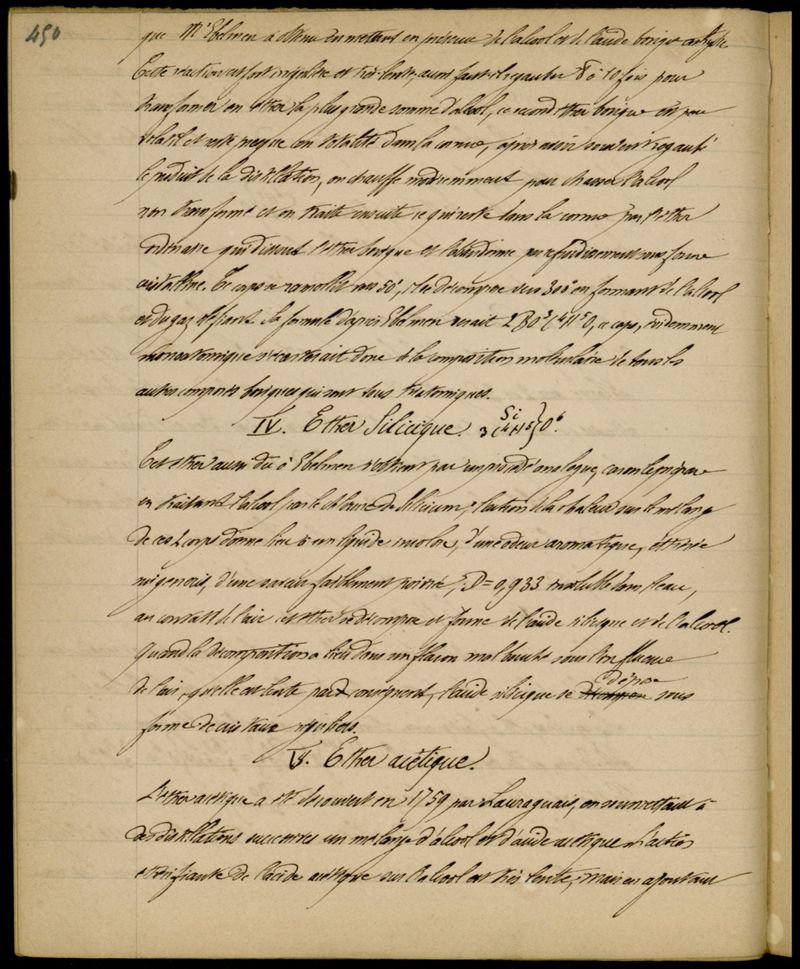 450
que Mr Ebelmen a obtenu en mettant en présence de l'alcool et de l'acide borique
Cette réaction est fort irrégulière et très lente, aussi faut il 8 à 10 fois pour
transformer en ether la plus grande somme d'alcool, ce second ether borique est peu
volatil et reste presque en totalité dans la cornue, après avoir souvent
le produit de la distillation, on chauffe modérément pour chasser l'alcool
non transformé et on traite ensuite ce qui reste dans la cornue par l'éther
ordinaire qui dissout l'ether borique et l'abandonne par refroidissement sous forme
cristalline. Ce corps se ramollit vers 50°, et se décompose vers 300° en formant de l'alcool
et du gaz oléfiant. Sa formule d'après Ebelmen serait 2BO3C4H5O, ce corps, évidemment
monoatomique donc à la composition moléculaire de tous les
autres composés boriques qui sont tous triatomiques.
IV. Ether Silicique. Si 3C4H5}O6.
Cet ether aussi dû à Ebelmen s'obtient par un procédé analogue, car on le prépare
en traitant l'alcool par le chlorure de silicium, l'action de la chaleur sur le mélange
de ces 2 corps donne lieu à un liquide incolore, d'une odeur aromatique, éthérée
d'une saveur faiblement poivrée, D = 0,933 insoluble dans l'eau,
au contact de l'air cet ether se décompose et forme de l'acide silicique et de l'alcool.
Quand la décomposition a lieu dans un flacon mal bouché sous l'influence
de l'air, qu'elle est lente par conséquent, l'acide silicique se dépose sous
forme de cristaux réguliers.
V. Ether acétique.
L'ether acétique a été découvert en 1759 par Lauraguais, en soumettant à
des distillations successives un mélange d'alcool et d'acide acétique. L'action
éthérifiante de l'acide acétique sur l'alcool est très lente, mais en ajoutant